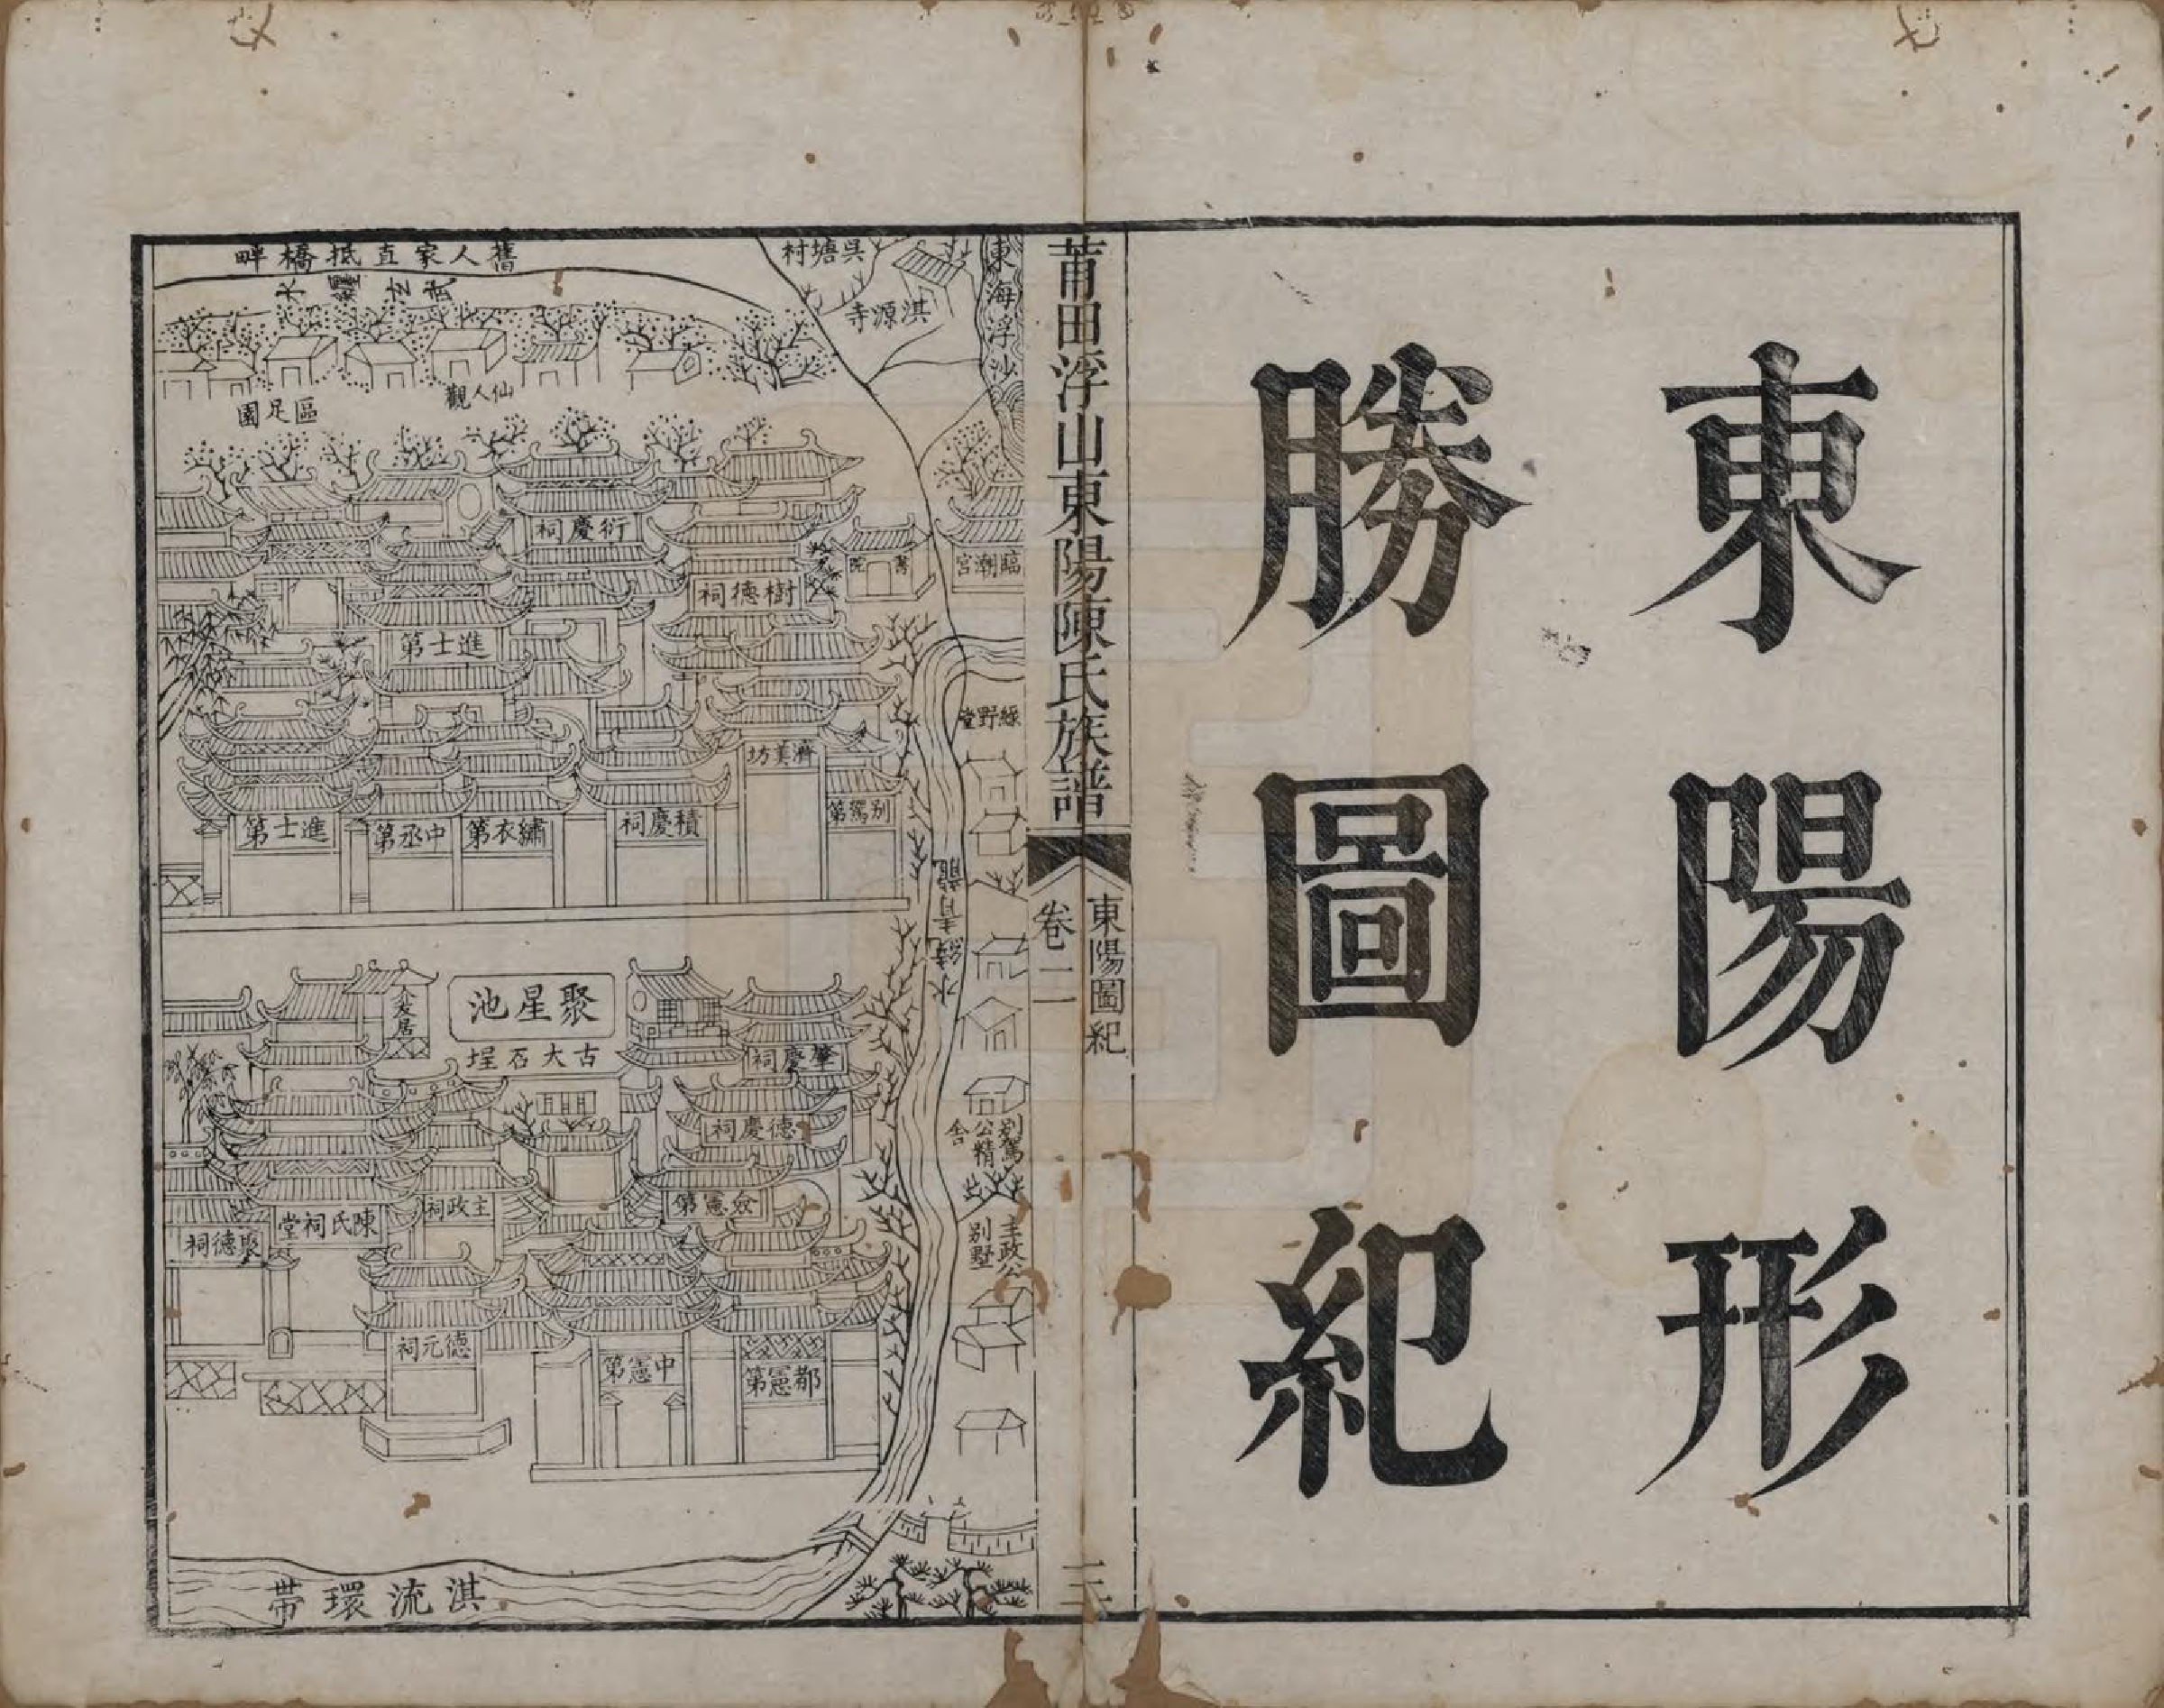 東陽形
勝圖紀
莆田浮山東陽陳氏族譜
卷二
東陽圖紀
三
東海浮沙
吳塘村
淇源寺
舊人家直抵橋畔
武玄纏水
仙人觀
區足園
臨潮宮
書院
衍慶祠
樹德祠
進士第
綠野堂
濟美坊
別駕第
積慶祠
繡衣第
中丞第
進士第
水繞青龍
聚星池
古大石埕
肇慶祠
德慶祠
僉憲第
主政祠
陳氏祠堂
聚德祠
德元祠
中憲第
都憲第
別駕公精舍
主政公別墅
淇流環帶